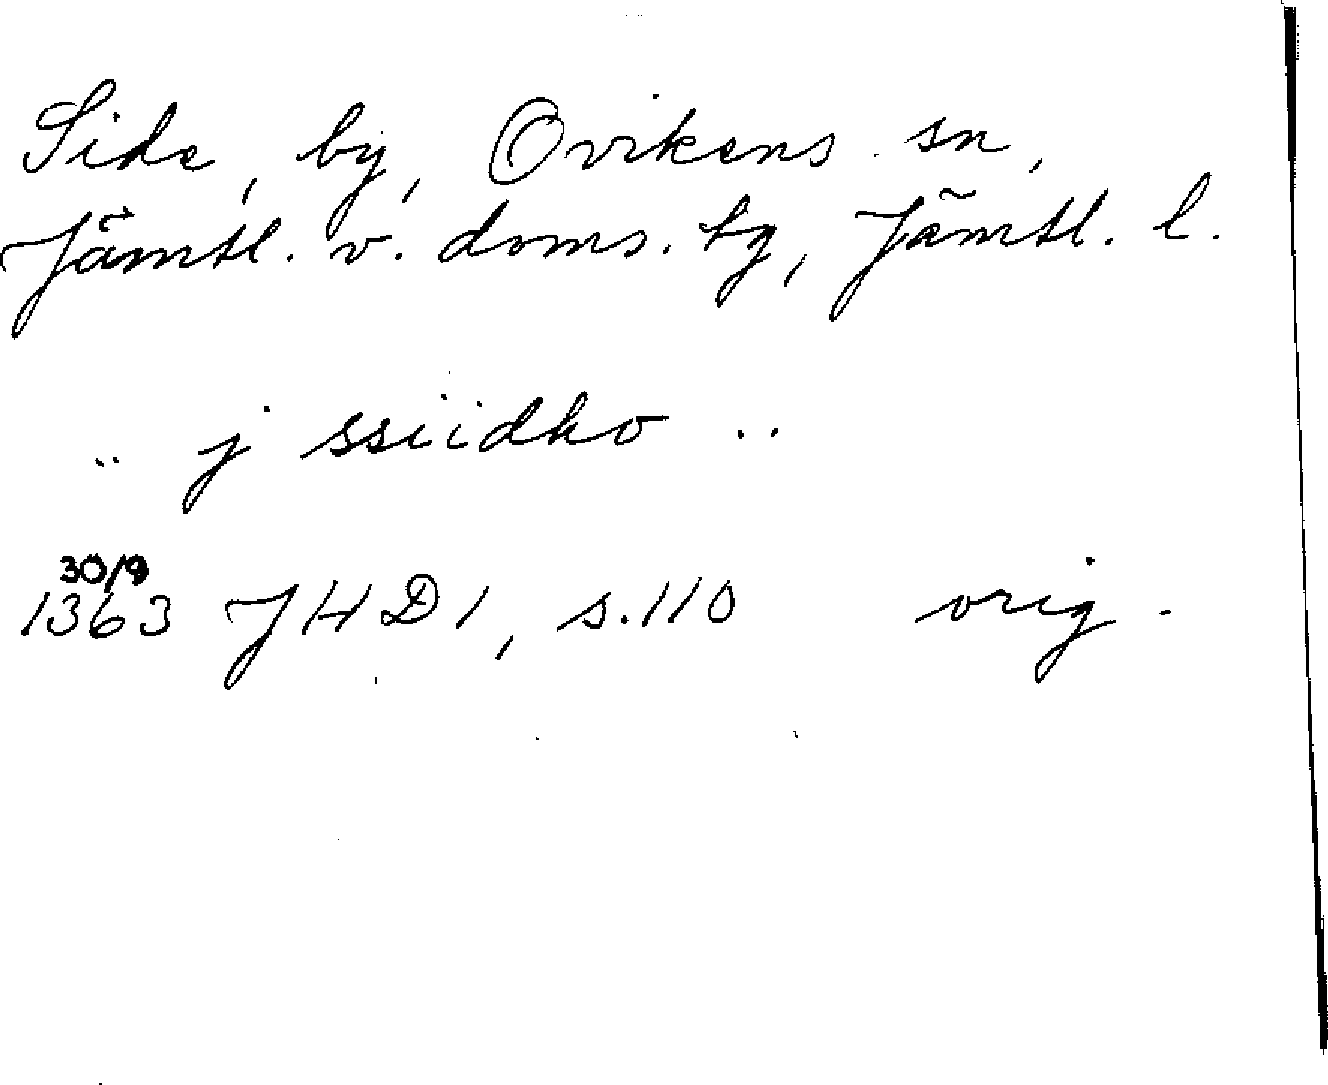 Side, by, Ovikens sn,
Jämtl. v. doms. tg, Jämtl. l.
.. j ssiidho ..
30/9
1363 JHD 1, s. 110 orig.